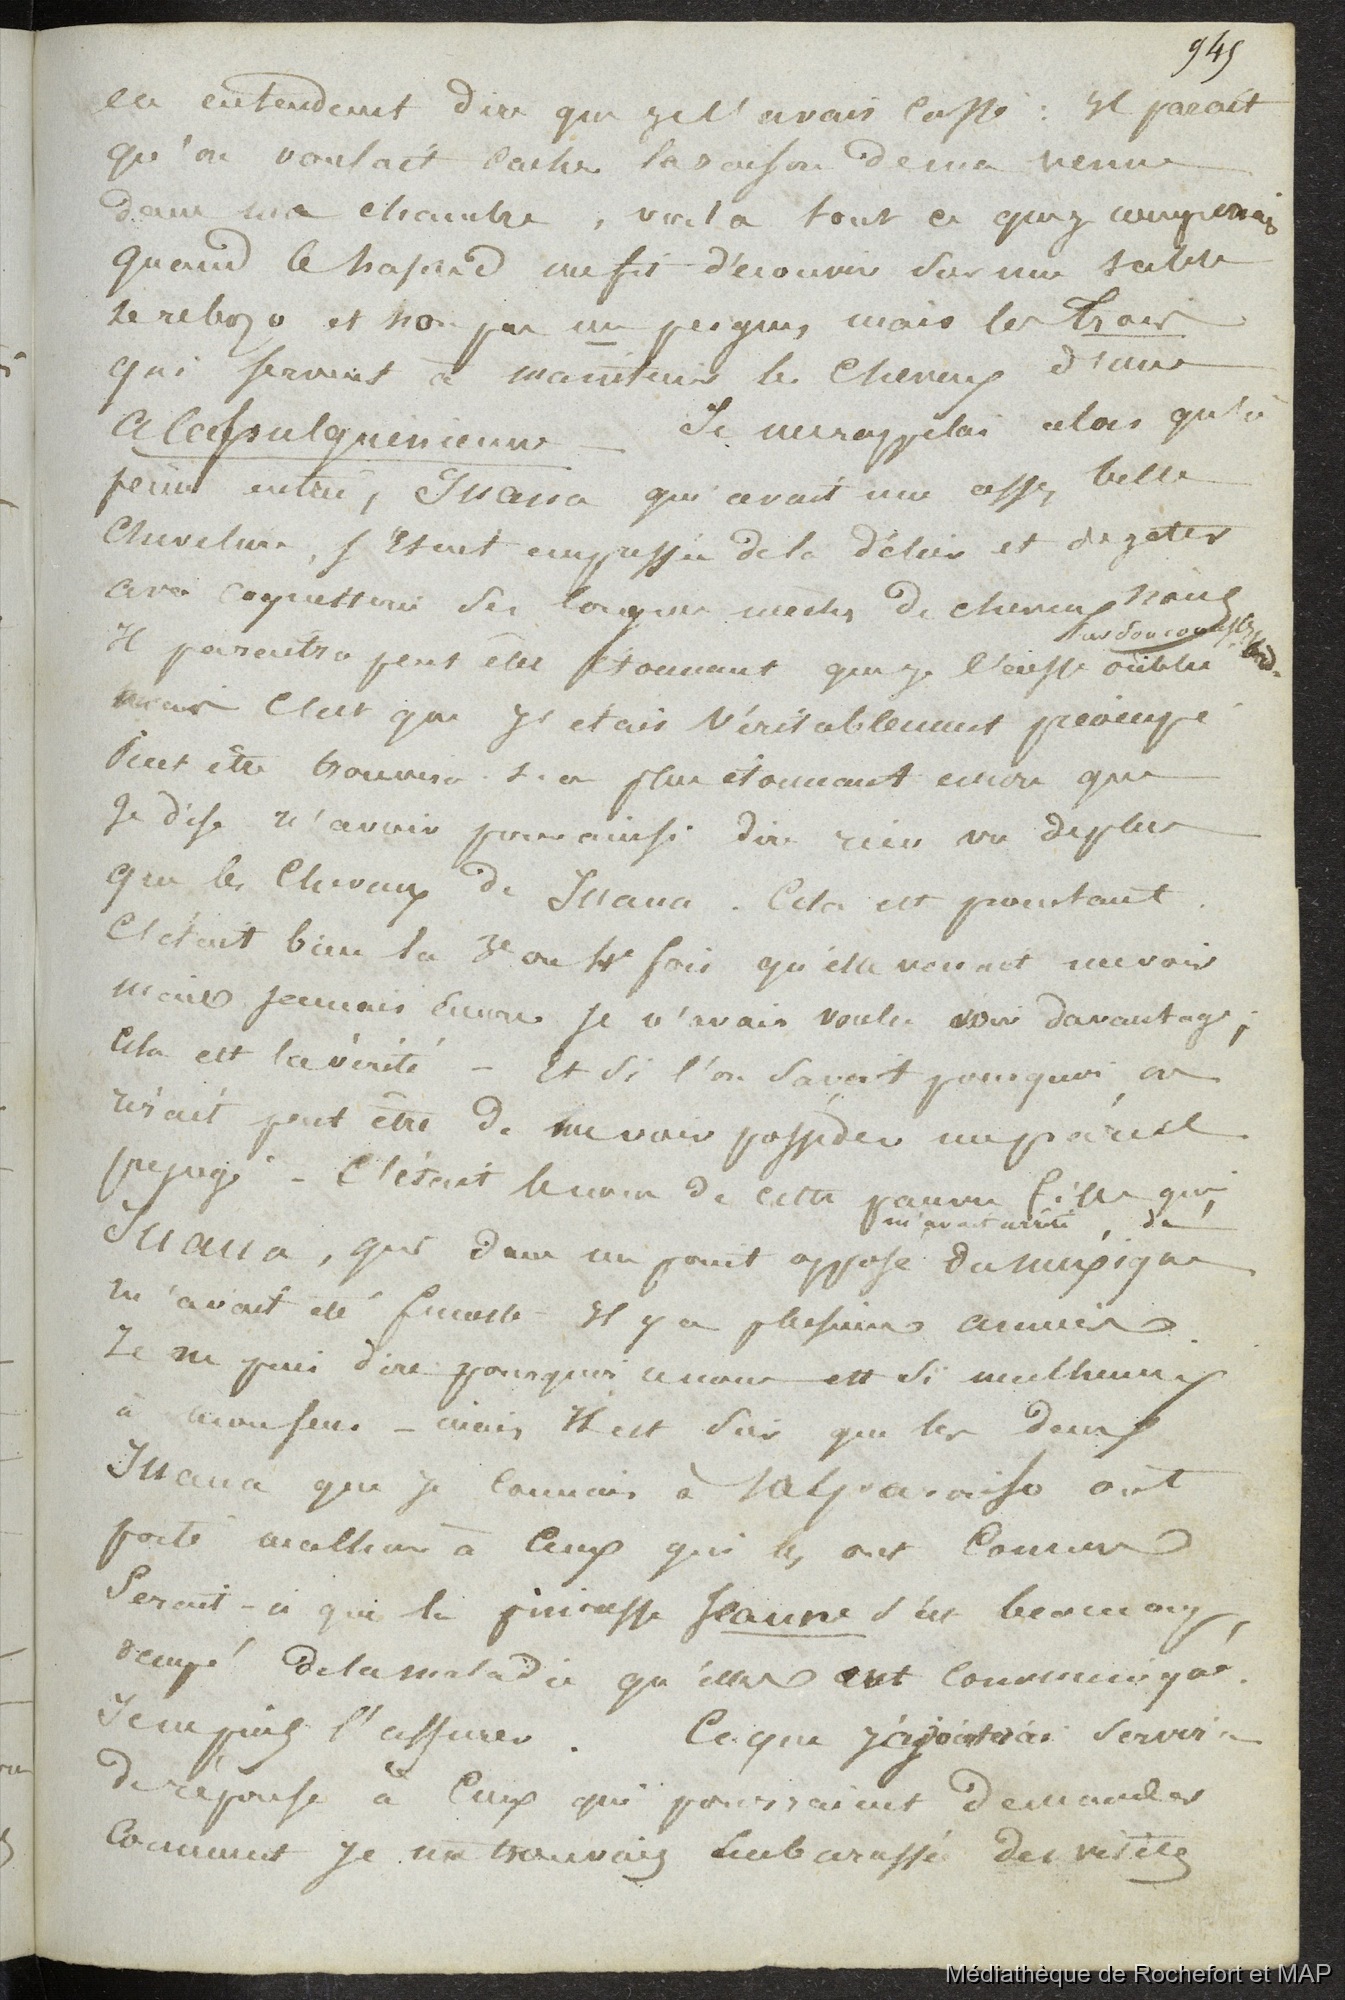 945
en entendant dire que je l'avais cassé : Il parait
qu'on voulait cacher la raison de ma venue
dans ma chambre , voila tout ce que je comprenais
quand le hasard me fit découvrir sur une table
le rebozo et non pas un peigne, mais les trois
qui servent à maintenir les cheveux d'une
Je me rappelai alors qu'à
peine entrée, Juana qui avait une assez belle
chevelure, s'était empressée de la délier et de jeter
avec coquetterie ses longues mèches de cheveux noirs
sur son cou
Il paraitra peut être étonnant que je l'eusse oublié
mais c'est que j'étais véritablement préoccupé
Peut être trouvera-t-on plus étonnant encore que
Je dise n'avoir pour ainsi dire rien vu de plus
que les cheveux de Juana . Cela est pourtant .
C'était bien la 3e ou 4e fois qu'elle venait me voir
mais jamais encore je n'avais voulu voir davantage ;
Cela est la vérité – Et si l'on savait pourquoi, on
rirait peut être de me voir posséder un pareil
préjugé – C'était le nom de cette pauvre fille qui,
m'avait arrêté , de
Juana , qui dans un point opposé du mexique
m'avait été funeste – Il y a plusieurs années .
Je ne puis dire pourquoi ce nom est si malheureux
à mon sens – mais il est sûr que les deux
Juana que je connais à Valparaiso ont
porté malheur à ceux qui les ont connues
Serait-ce que la princesse Jeanne s'est beaucoup
occupé de la maladie qu'elles ont communiqué .
Je ne puis l'assurer . Ce que j'ajouterai servira
de réponse à ceux qui pourraient demander
comment je me trouvais embarassé des visites
Médiathèque de Rochefort et MAP